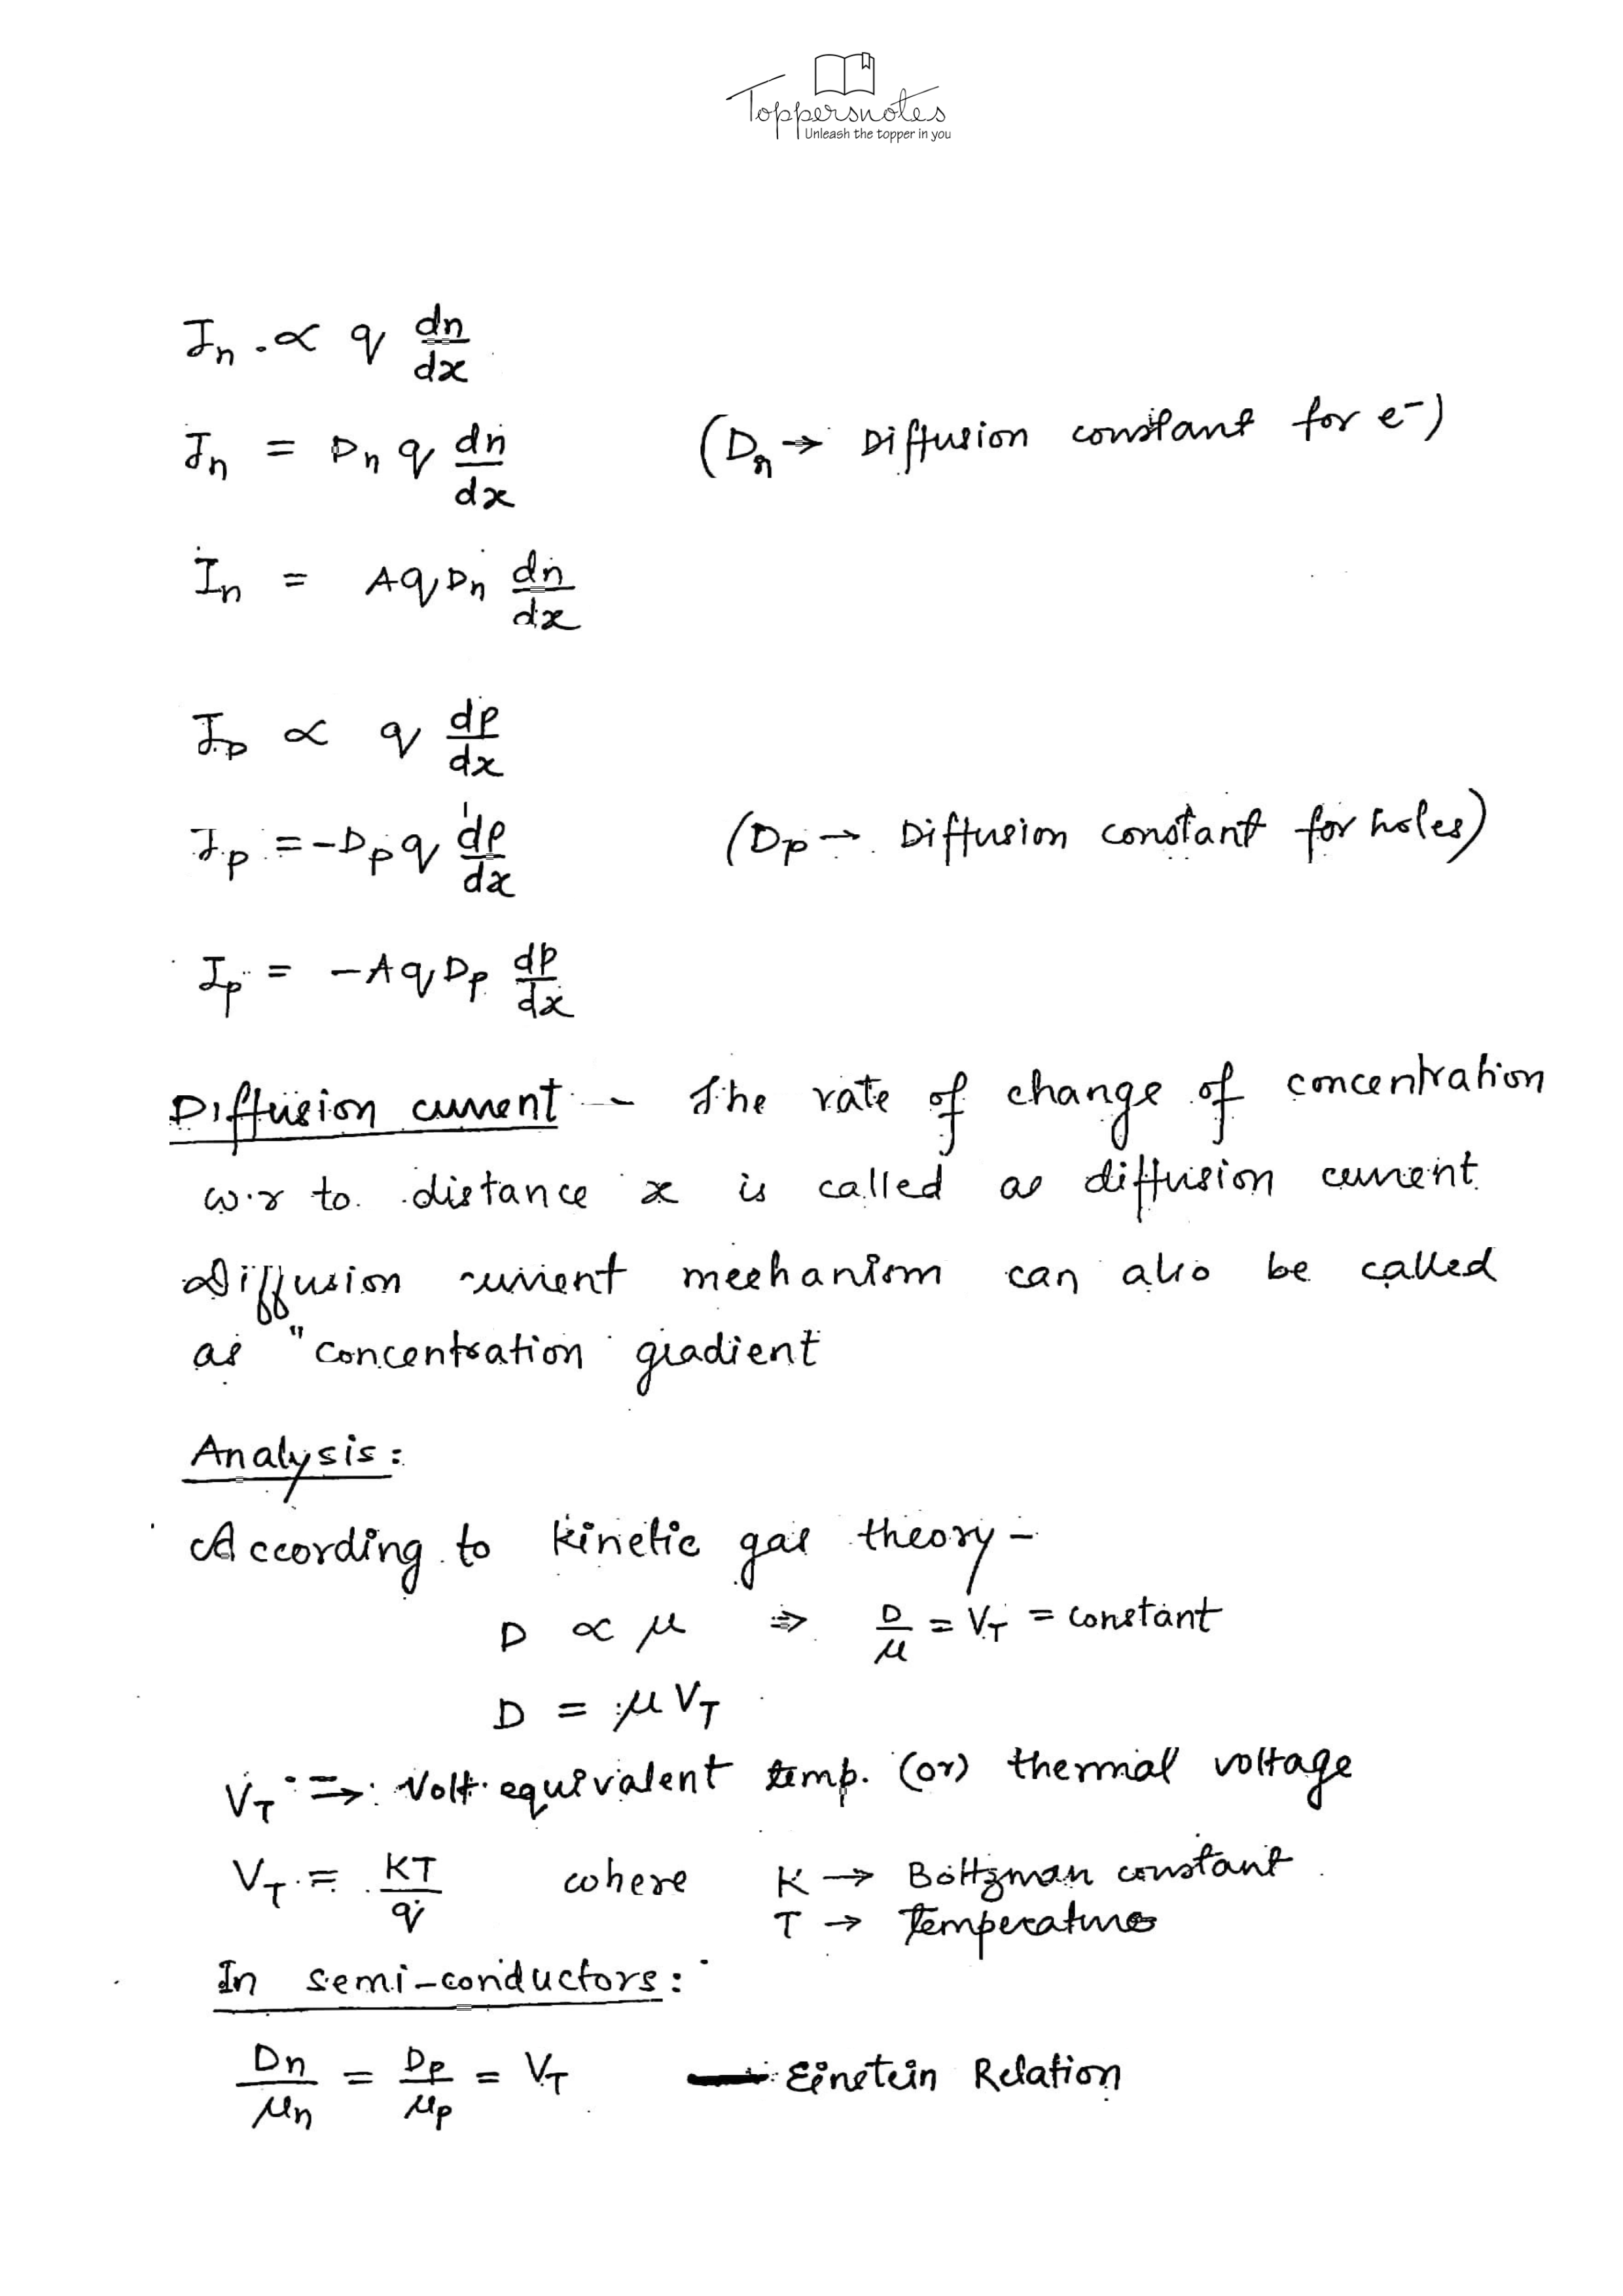 Toppersnotes
Unleash the topper in you
Jn ∝ q dn/dx
Jn = Dn q dn/dx (Dn → Diffusion constant for e⁻)
In = AqDn dn/dx
Jp ∝ q dp/dx
Jp = -Dp q dp/dx (Dp → Diffusion constant for holes)
Ip = -AqDp dp/dx
Diffusion current - The rate of change of concentration
w.r to. distance x is called as diffusion current
Diffusion current mechanism can also be called
as "concentration gradient
Analysis:
According to kinetic gas theory -
D ∝ μ ⇒ D/μ = VT = constant
D = μVT
VT ⇒ Volt equivalent temp. (or) thermal voltage
VT = KT/q where K → Boltzman constant
T → Temperature
In semi-conductors:
Dn/μn = Dp/μp = VT — Einstein Relation